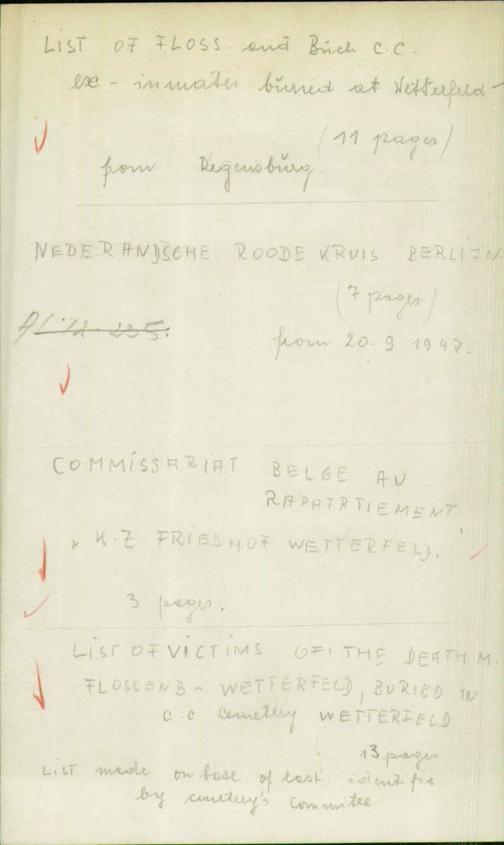 LIST OF FLOSS. and Büch C.C.
ex - inmates buried at Wetterfeld -
(11 pages)
from Regensbürg
NEDERANDSCHE ROODE KRUIS BERLIJN
(7 pages)
from 20.9.1947.
COMMISSARIAT BELGE AU
RAPATRTIEMENT
K.Z. FRIEDHOF WETTERFELD.
3 pages.
LIST OF VICTIMS OF THE DEATH M.
FLOSSENB - WETTERFELD, BURIED IN
C.C cemetery WETTERFELD
13 pages
LIST made on base of last identific
by cmetery's Committee